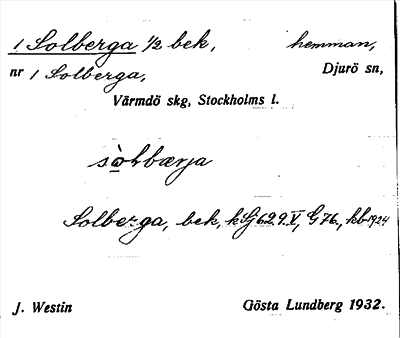 1 Solberga 1/2 bek, hemman,
nr 1 Solberga, Djurö sn,
Värmdö skg, Stockholms l.
Solberga, bek, kSj 629 V, G 76, kb 1924
J. Westin Gösta Lundberg 1932.